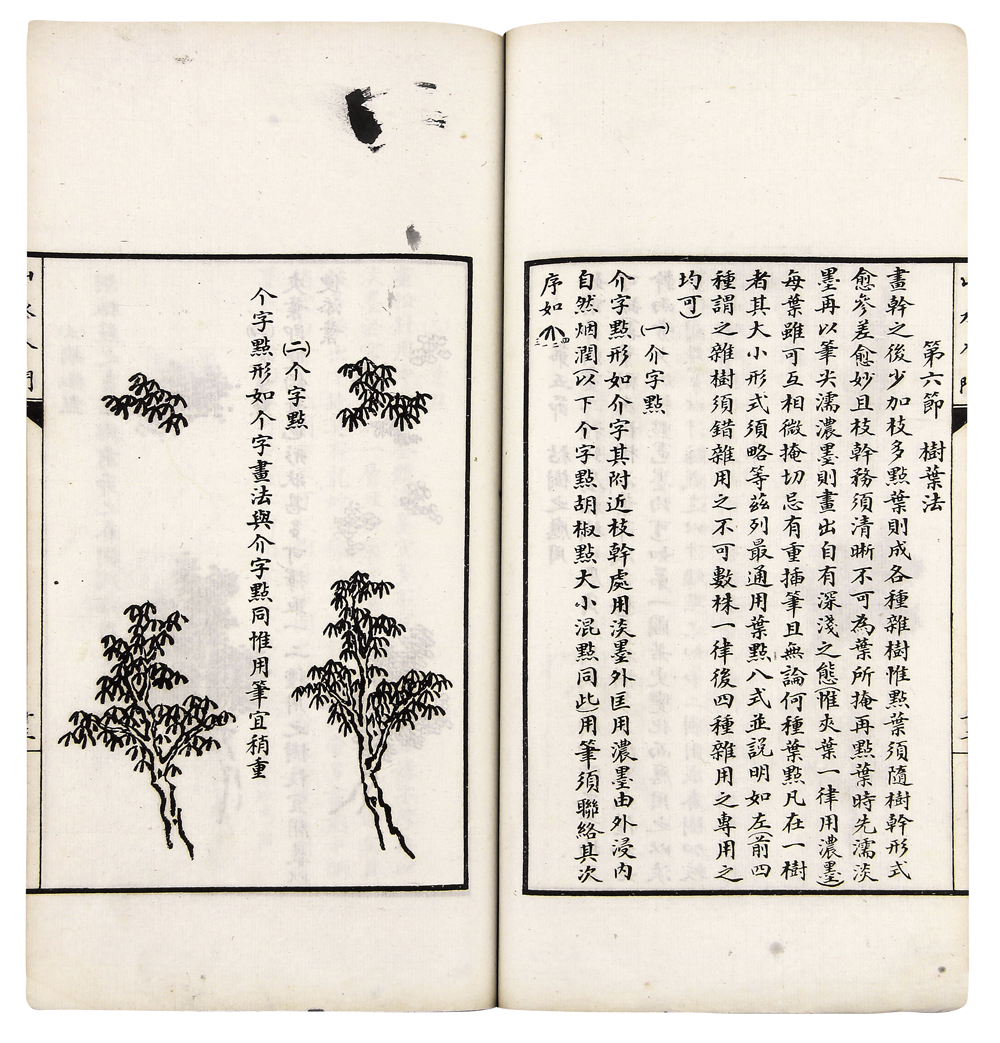 第六節　樹葉法
畫幹之後少加枝多點葉則成各種雜樹惟點葉須隨樹幹形式
愈參差愈妙且枝幹務須清晰不可為葉所掩再點葉時先濡淡
墨再以筆尖濡濃墨則畫出自有深淺之態惟夾葉一律用濃墨)
每葉雖可互相微掩切忌有重插筆且無論何種葉點凡在一樹
者其大小形式須略等茲列最通用葉點八式並説明如左(前四
種謂之雜樹須錯雜用之不可數株一律後四種雜用之專用之
均可)
(一)介字點
介字點形如介字其附近枝幹處用淡墨外匡用濃墨由外浸內
自然烟潤(以下个字點胡椒點大小混點同此)用筆須聯絡其次
序如
(二)个字點
个字點形如个字畫法與介字點同惟用筆宜稍重